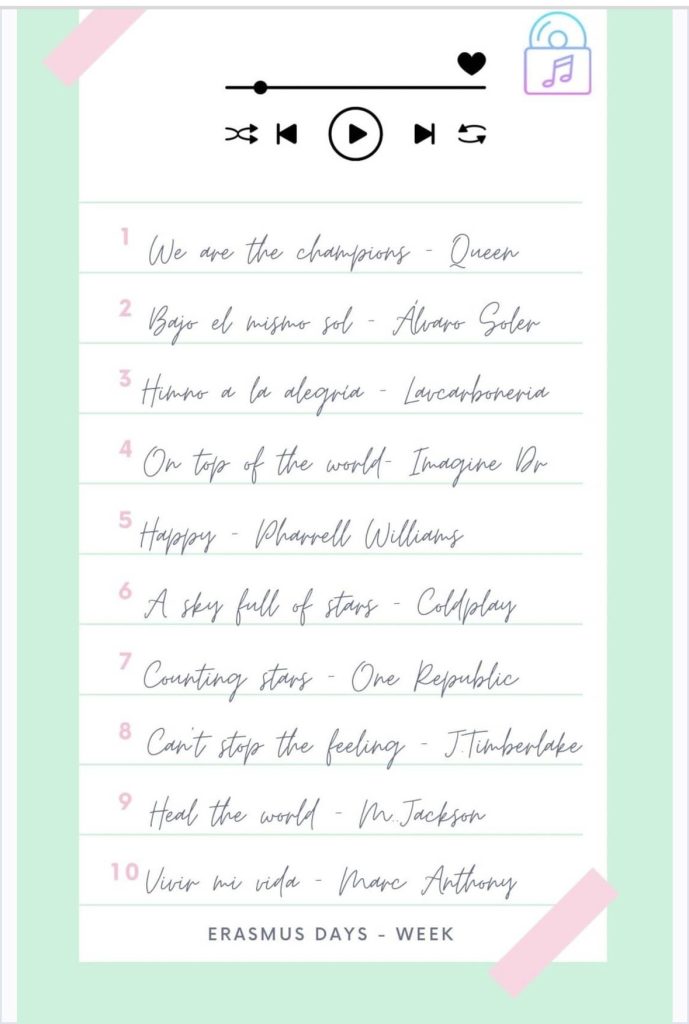 1 We are the champions - Queen
2 Bajo el mismo sol - Álvaro Soler
3 Himno a la alegría - Lavcarboneria
4 On top of the world- Imagine Dr
5 Happy - Pharrell Williams
6 A sky full of stars - Coldplay
7 Counting stars - One Republic
8 Can't stop the feeling - J.Timberlake
9 Heal the world - M.Jackson
10 Vivir mi vida - Marc Anthony
ERASMUS DAYS - WEEK